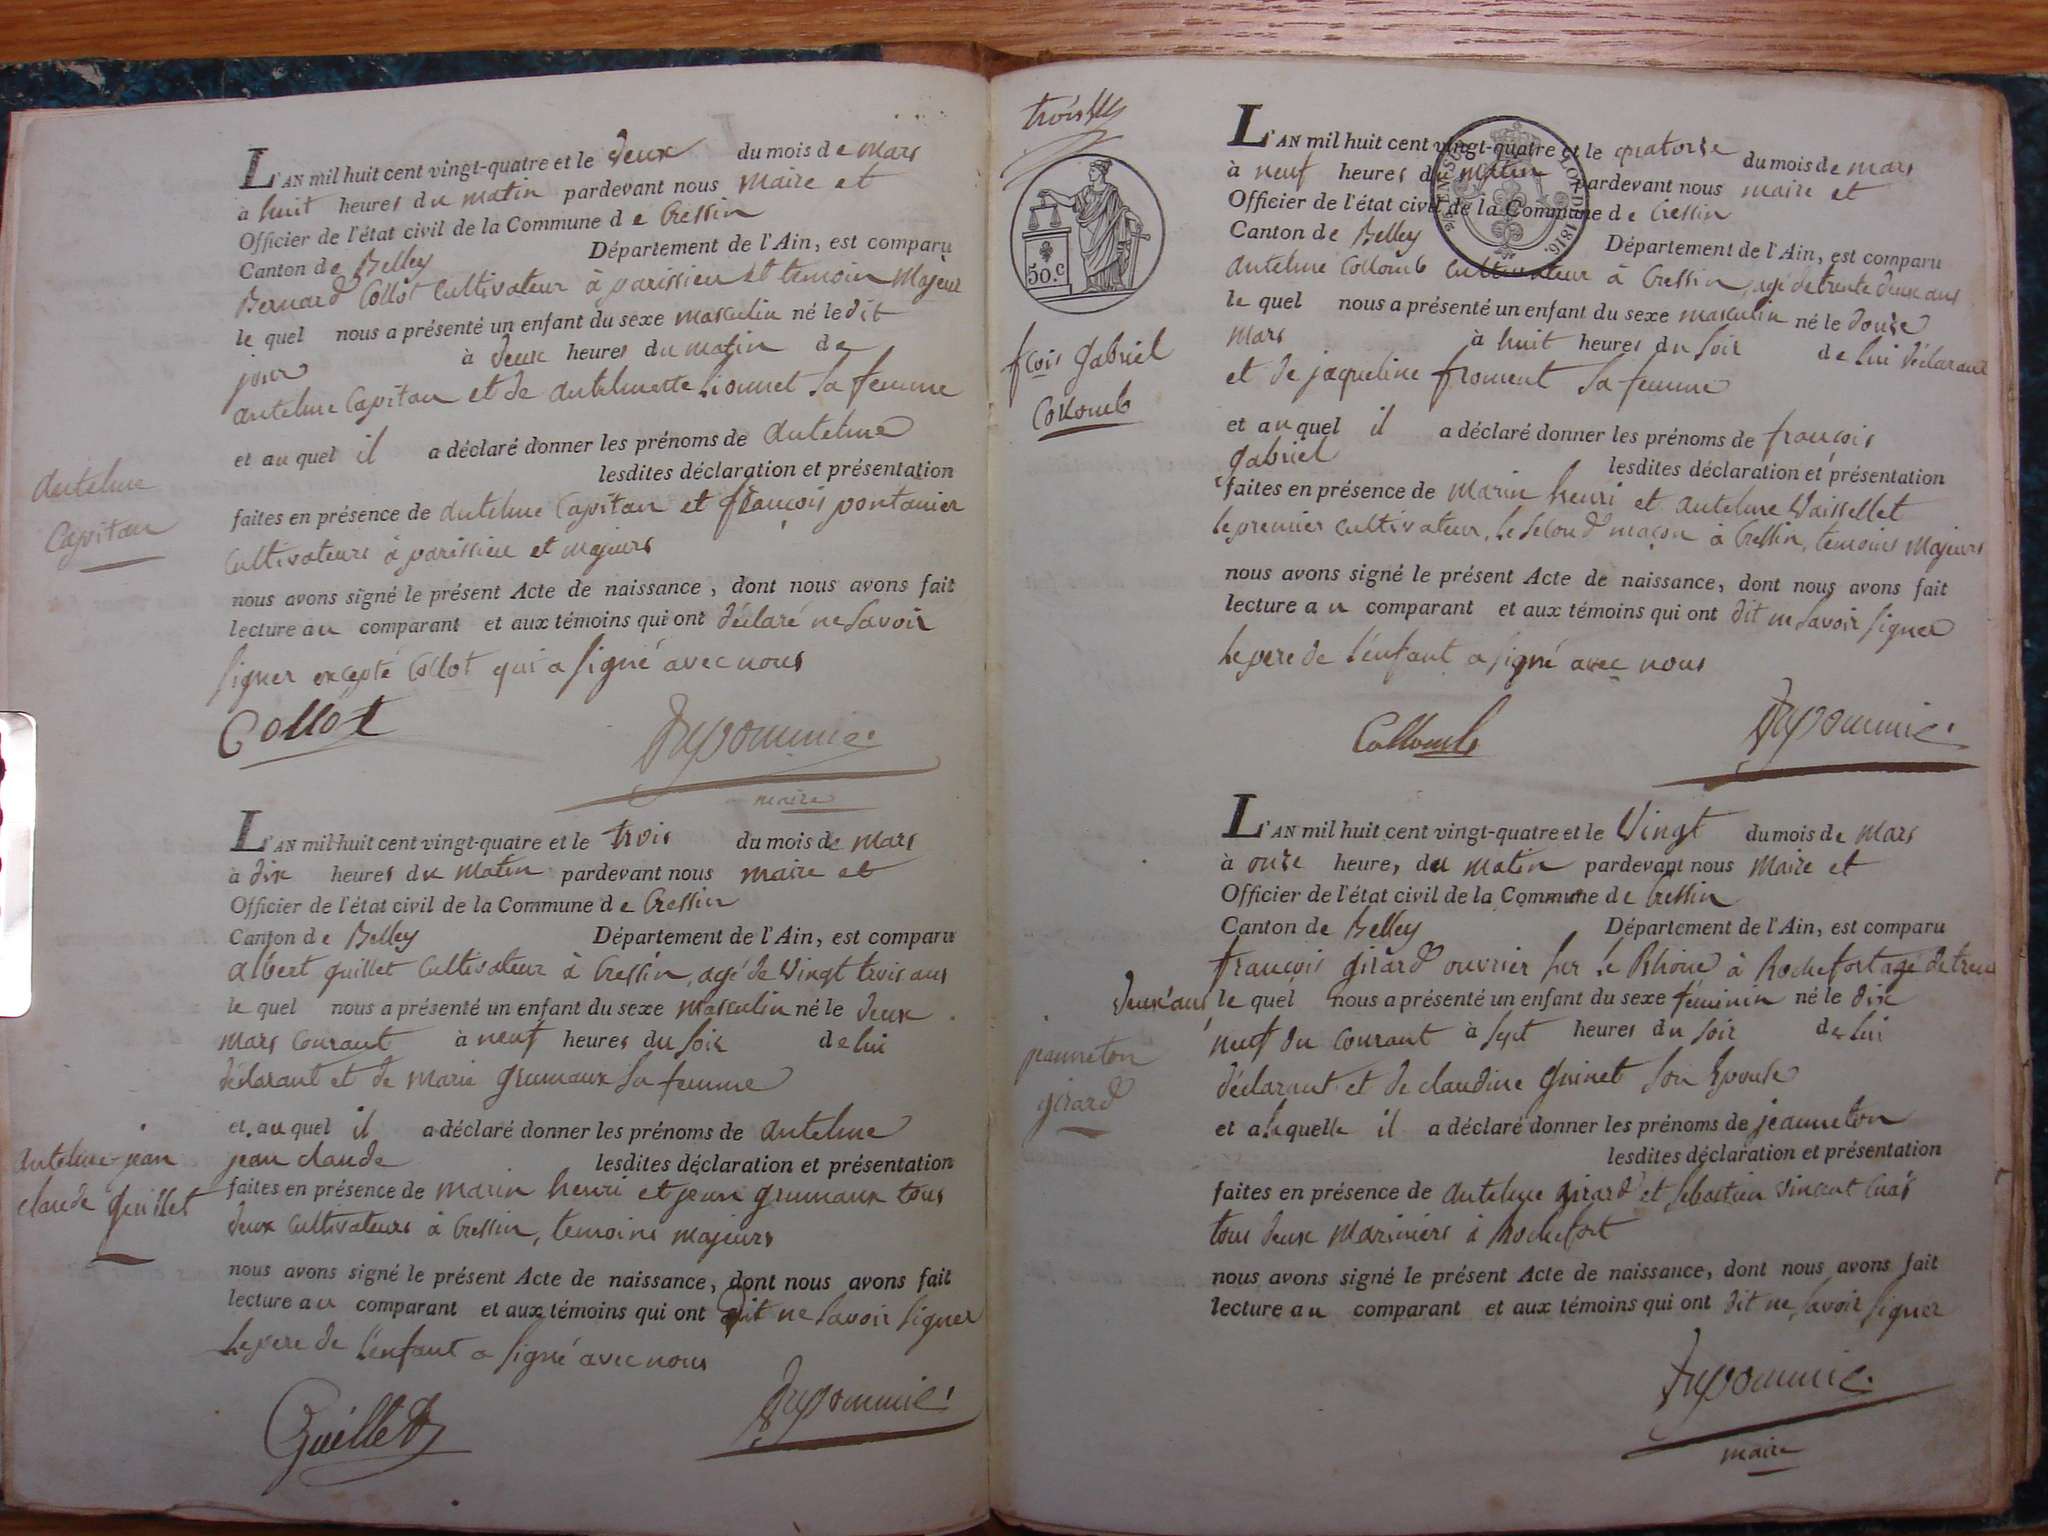 L'AN mil huit cent vingt-quatre et le deux du mois de mars
à huit heures du matin pardevant nous maire et
Officier de l'état civil de la Commune de Cressin
Canton de Belley Département de l'Ain, est comparu
Bernard Collot cultivateur à parissieu et temoin Majeur
le quel nous a présenté un enfant du sexe masculin né le dit
jour à deux heures du matin de
antelme Capitan et de antelmette Lionnet sa femme
et au quel il a déclaré donner les prénoms de antelme
lesdites déclaration et présentation
antelme
Capitan
faites en présence de antelme Capitan et françois pontanier
cultivateurs à parissieu et majeurs
nous avons signé le présent Acte de naissance, dont nous avons fait
lecture au comparant et aux témoins qui ont déclaré ne savoir
signer excepté Collot qui a signé avec nous
Collot
maire
L'AN mil huit cent vingt-quatre et le trois du mois de mars
à dix heures du matin pardevant nous maire et
Officier de l'état civil de la Commune de Cressin
Canton de Belley Département de l'Ain, est comparu
albert guillet cultivateur à Cressin, agé de vingt trois ans
le quel nous a présenté un enfant du sexe masculin né le deux
mars courant à neuf heures du soir de lui
déclarant et de marie grumaux sa femme
et au quel il a déclaré donner les prénoms de antelme
jean claude lesdites déclaration et présentation
antelme jean
claude guillet
faites en présence de marin henri et jean grumaux tous
deux cultivateurs à Cressin, temoins majeurs
nous avons signé le présent Acte de naissance, dont nous avons fait
lecture au comparant et aux témoins qui ont dit ne savoir signer
le pere de l'enfant a signé avec nous
Guillet
50.c
L'AN mil huit cent vingt-quatre et le quatorze du mois de mars
à neuf heures du matin pardevant nous maire et
Officier de l'état civil de la Commune de Cressin
Canton de Belley Département de l'Ain, est comparu
antelme Collomb cultivateur à Cressin, agé de trente deux ans
le quel nous a présenté un enfant du sexe masculin né le douze
mars à huit heures du soir de lui déclarant
et de jaqueline froment sa femme
fçois gabriel
Collomb
et au quel il a déclaré donner les prénoms de françois
gabriel lesdites déclaration et présentation
faites en présence de marin henri et antelme Vaissellet
le premier cultivateur, le second maçon à Cressin, temoins majeurs
nous avons signé le présent Acte de naissance, dont nous avons fait
lecture au comparant et aux témoins qui ont dit ne savoir signer
le pere de l'enfant a signé avec nous
Collomb
L'AN mil huit cent vingt-quatre et le Vingt du mois de mars
à onze heures du matin pardevant nous Maire et
Officier de l'état civil de la Commune de Cressin
Canton de Belley Département de l'Ain, est comparu
françois girard ouvrier sur le Rhône à Rochefort agé de trente
deux ans le quel nous a présenté un enfant du sexe féminin né le dix
neuf du courant à sept heures du soir de lui
déclarant et de claudine guinet son Epouse
jeanneton
girard
et a laquelle il a déclaré donner les prénoms de jeanneton
lesdites déclaration et présentation
faites en présence de antelme girard et sébastien vincent
tous deux mariniers à Rochefort
nous avons signé le présent Acte de naissance, dont nous avons fait
lecture au comparant et aux témoins qui ont dit ne savoir signer
maire